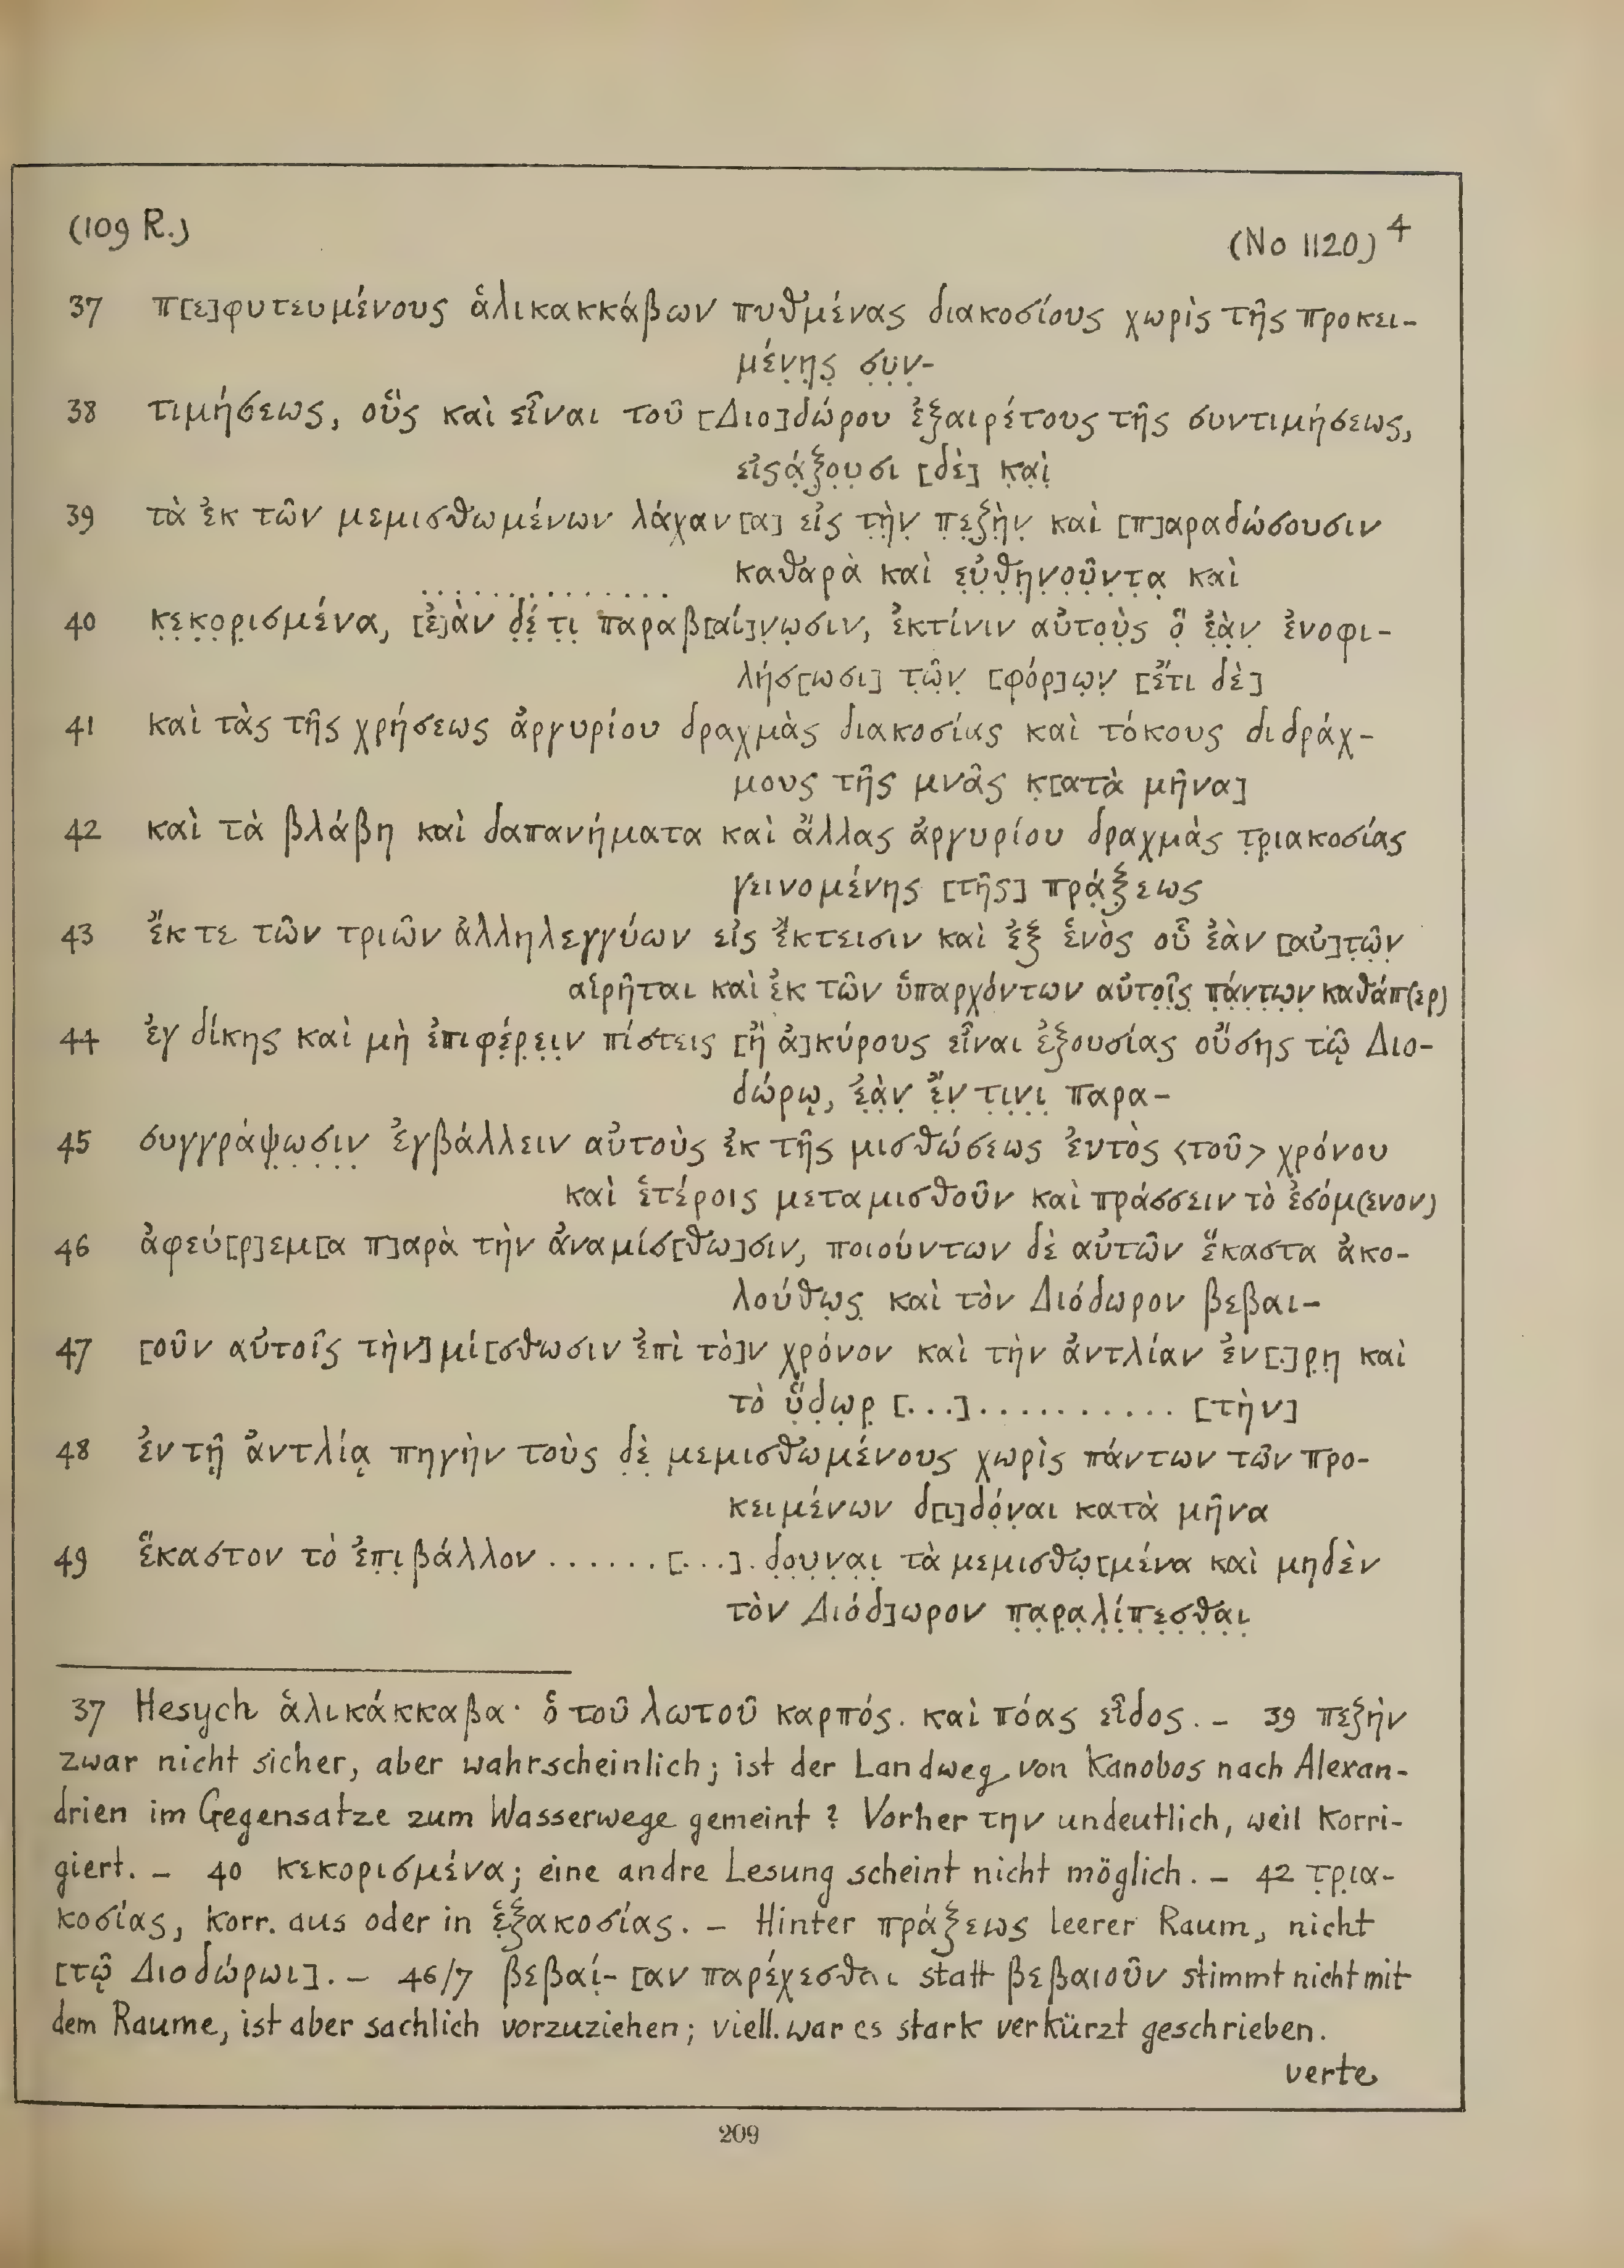 (109 R.)
(No 1120) 4
37 π[ε]φυτευμένους ἁλικακκάβων πυθμένας διακοσίους χωρὶς τῆς προκει-
μένη̣ς̣ σ̣υ̣ν̣-
38 τιμήσεως, οὓς καὶ εἶναι τοῦ [Διο]δώρου ἐξαιρέτους τῆς συντιμήσεως,
εἰσά̣ξ̣ο̣υ̣σι [δὲ] κ̣α̣ὶ̣
39 τὰ ἐκ τῶν μεμισθωμένων λάχαν[α] εἰς τ̣ὴ̣ν̣ π̣ε̣ζ̣ὴ̣ν̣ καὶ [π]αραδώσουσιν
καθαρὰ καὶ ε̣ὐ̣θ̣η̣ν̣ο̣ῦ̣ν̣τ̣α̣ καὶ
40 κ̣ε̣κ̣ο̣ρ̣ισμένα, [ἐ]ὰν δ̣έ̣ τ̣ι̣ παραβ[αί]ν̣ω̣σιν, ἐκτίνιν αὐτο̣ὺ̣ς ὃ̣ ἐ̣ὰ̣ν̣ ἐνοφι-
λήσ[ωσι] τ̣ῶ̣ν̣ [φόρ]ω̣ν̣ [ἔτι δὲ]
41 καὶ τὰς τῆς χρήσεως ἀργυρίου δραχμὰς διακοσίας καὶ τόκους διδράχ-
μους τῆς μνᾶς κ̣[ατὰ μῆνα]
42 καὶ τὰ βλάβη καὶ δαπανήματα καὶ ἄλλας ἀργυρίου δραχμὰς τ̣ρ̣ιακοσίας
γεινομένης [τῆς] πρά̣ξ̣εως
43 ἔκ τε τῶν τριῶν ἀλληλεγγύων εἰς ἔκτεισιν καὶ ἐξ ἑνὸς οὗ ἐὰν [αὐ]τ̣ῶ̣ν̣
αἱρῆται καὶ ἐκ τῶν ὑπαρχόντων αὐτο̣ῖ̣ς̣ π̣ά̣ν̣τ̣ω̣ν̣ καθάπ(ερ)
44 ἐγ δίκης καὶ μὴ ἐπιφέ̣ρ̣ε̣ι̣ν πίστεις [ἢ ἀ]κύρους εἶναι ἐξουσίας οὔσης τῷ Διο-
δώρῳ, ἐ̣ὰ̣ν̣ ἔ̣ν̣ τ̣ι̣ν̣ι̣ παρα-
45 συγγράψ̣ω̣σ̣ι̣ν̣ ἐγβάλλειν αὐτοὺς ἐκ τῆς μισθώσεως ἐντὸς <τοῦ> χρόνου
καὶ ἑτέροις μεταμισθοῦν καὶ πράσσειν τὸ ἐσόμ(ενον)
46 ἀφεύ[ρ]εμ[α π]αρὰ τὴν ἀναμίσ[θω]σιν, ποιούντων δὲ αὐτῶν ἕκαστα ἀκο-
λούθω̣ς̣ καὶ τὸν Διόδωρον βεβαι-
47 [οῦν αὐτοῖς τὴν] μί[σθωσιν ἐπὶ τὸ]ν χρόνον καὶ τὴν ἀντλίαν ἐν[.]ρ̣η̣ καὶ
τὸ ὕ̣δ̣ω̣ρ̣ [...].......... [τὴν]
48 ἐν τῇ ἀντλίᾳ πηγὴν τοὺς δ̣ὲ̣ μ̣εμισθωμένους χωρὶς πάντων τῶν προ-
κειμένων δ[ι]δό̣ν̣αι κατὰ μῆνα
49 ἕκαστον τὸ ἐπ̣ι̣βάλλον ......[...].δ̣ο̣υ̣ν̣α̣ι̣ τὰ μεμισθω̣[μένα καὶ μηδὲν
τὸν Διόδ]ωρον π̣α̣ρ̣α̣λ̣ί̣π̣ε̣σ̣θ̣α̣ι̣
37 Hesych ἁλικάκκαβα· ὁ τοῦ λωτοῦ καρπός. καὶ πόας εἶδος. – 39 πεζὴν
zwar nicht sicher, aber wahrscheinlich; ist der Landweg von Kanobos nach Alexan-
drien im Gegensatze zum Wasserwege gemeint? Vorher την undeutlich, weil korri-
giert. – 40 κεκορισμένα; eine andre Lesung scheint nicht möglich. – 42 τ̣ρ̣ια-
κοσίας, korr. aus oder in ἑ̣ξ̣ακοσίας. – Hinter πράξεως leerer Raum, nicht
[τῷ Διοδώρωι]. – 46/7 βεβαί̣-[αν παρέχεσθαι statt βεβαιοῦν stimmt nicht mit
dem Raume, ist aber sachlich vorzuziehen; viell. war es stark verkürzt geschrieben.
verte
209